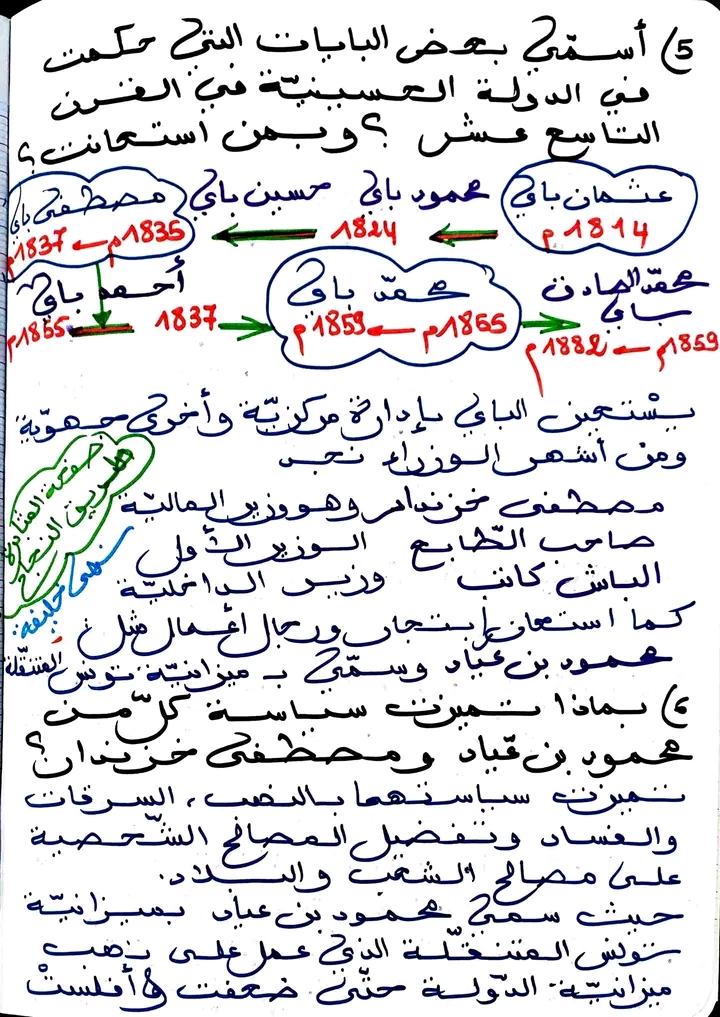 5) أسمّي بعض البايات التي حكمت
في الدولة الحسينيّة في القرن
التاسع عشر ؟ وبمن استعانت ؟
عثمان باي محمود باي حسين باي مصطفى باي
1814م 1824 1835م 1837م
محمّد الصادق باي محمّد باي أحمد باي
1859م 1882م 1855م 1859م 1837 1855م
يستعين الباي بإدارة مركزيّة وأخرى جهويّة
ومن أشهر الوزراء نجد
مصطفى خزندار وهو وزير الماليّة
صاحب الطّابع الوزير الأول
الباش كاتب وزير الداخليّة
كما استعان بتجار ورجال أعمال مثل
محمود بن عيّاد وسمّي بـ ميزانيّة تونس المتنقّلة
صفحة المنارة
طريق النجاح
سهى خليفة
6) بماذا تميزت سياسة كلّ من
محمود بن عيّاد ومصطفى خزندار؟
تميزت سياستهما بالنهب، السرقات
والفساد وتفضيل المصالح الشّخصية
على مصالح الشعب والبلاد.
حيث سمي محمود بن عياد بميزانيّة
تونس المتنقّلة الذي عمل على نهب
ميزانيّة الدّولة حتّى ضعفت وأفلستْ